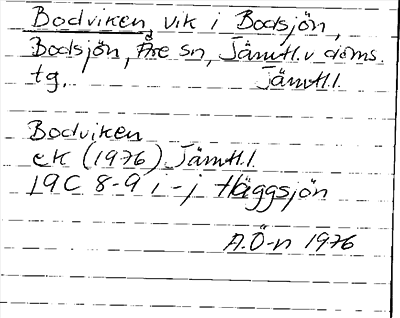 Bodviken, vik i Bodsjön,
Bodsjön, Åre sn, Jämtl. v. doms.
tg. Jämtl. l.
Bodviken
ek (1976) Jämtl. l.
19C 8-9 i-j Häggsjön
A.Ö-n 1976